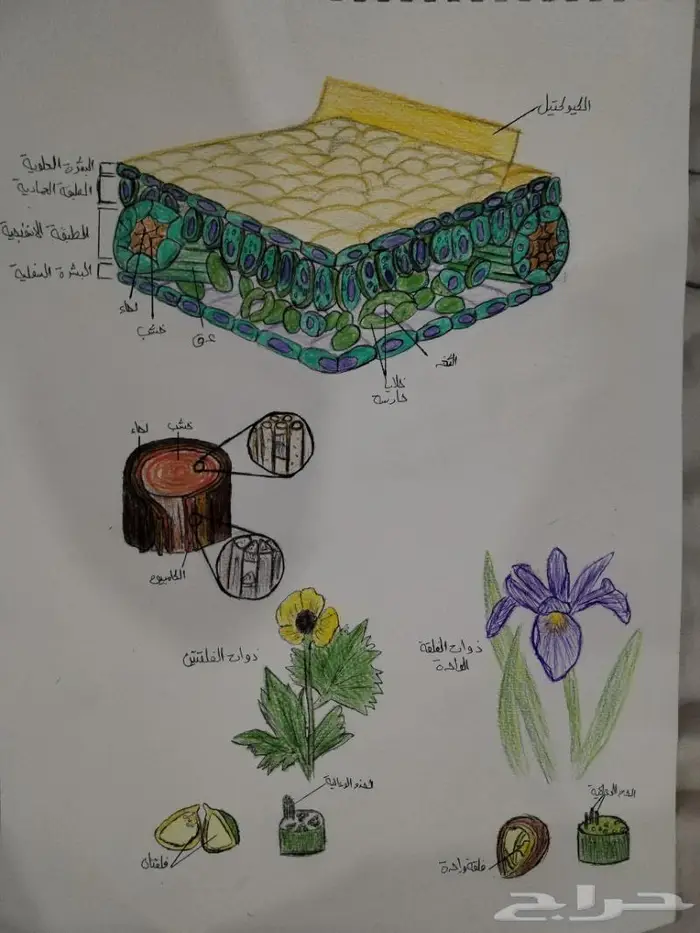 الكيوكتيل
البشرة العلوية
الطبقة العمادية
الطبقة الإسفنجية
البشرة السفلية
لحاء
خشب
عرق
الثغر
خلايا
حارسة
لحاء
خشب
الكامبيوم
ذوات الفلقتين
ذوات الفلقة
الواحدة
الحزم الوعائية
الحزم الوعائية
فلقتان
فلقة واحدة
حراج